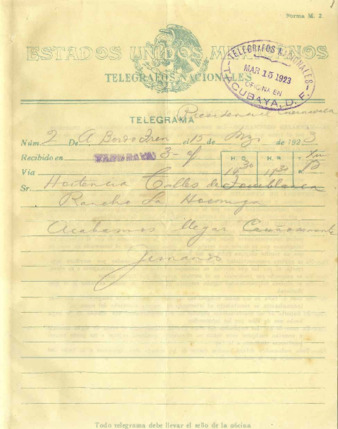 Forma M. 2
ESTADOS UNIDOS MEXICANOS
TELEGRAFOS NACIONALES
TELEGRAFOS NACIONALES
MAR 15 1923
OFICINA EN
TACUBAYA, D. F.
TELEGRAMA
Núm. 2 De A Bordo tren el 15 de de 1923
Recibido en TACUBAYA
Vía H. D. H. R.
Sr. Hortencia Calles de Torreblanca
Rancho La Hormiga
Acabamos llegar Cariñosamente
Fernando
Todo telegrama debe llevar el sello de la oficina